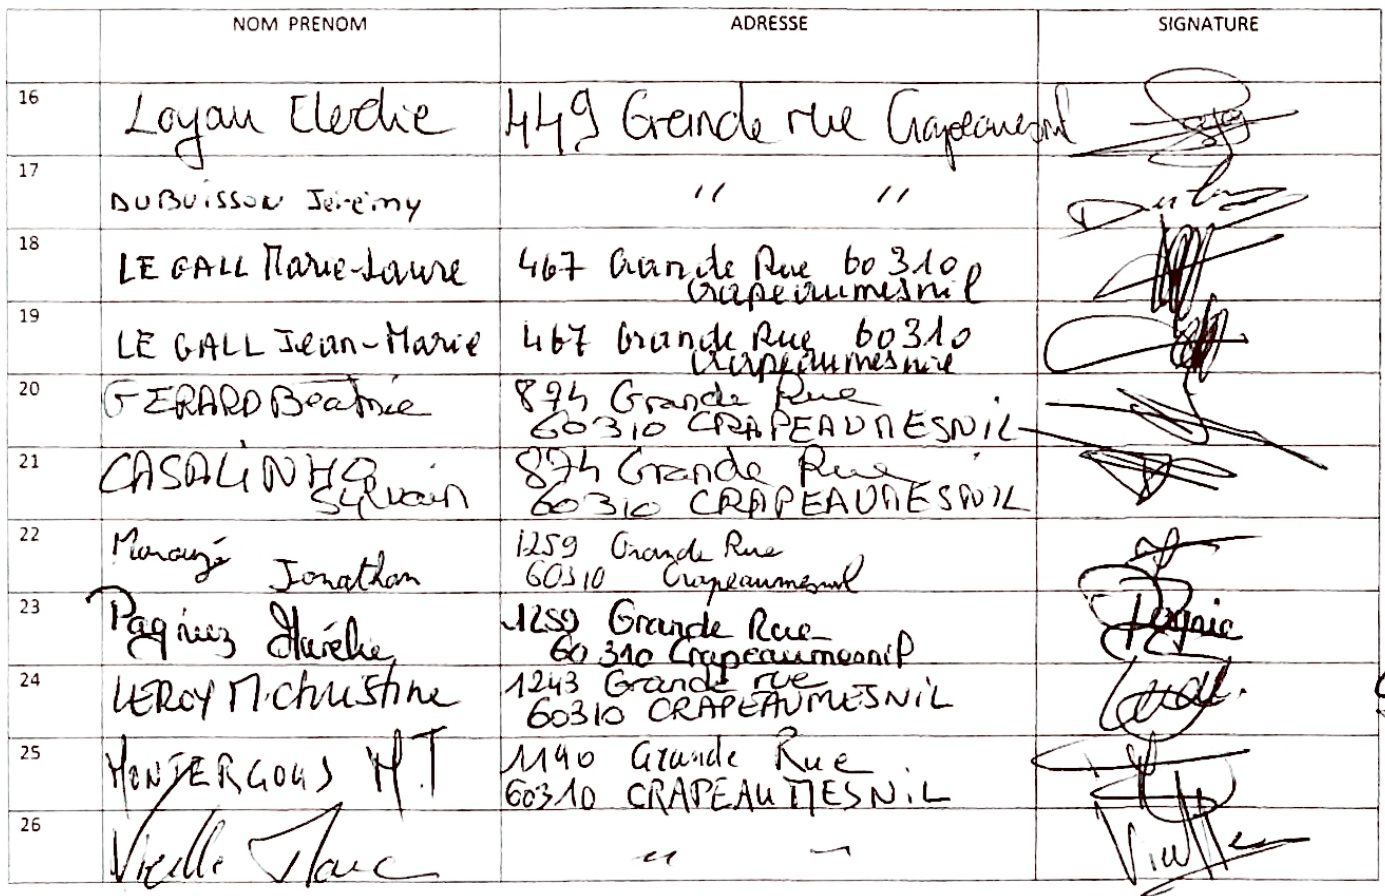 NOM PRENOM ADRESSE SIGNATURE
16 Loyau Elodie 449 Grande rue Crapeaumesnil
17 DUBUISSON Jérémy " "
18 LE GALL Marie-Laure 467 Grande Rue 60310
Crapeaumesnil
19 LE GALL Jean-Marie 467 Grande Rue 60310
Crapeaumesnil
20 GERARD Béatrice 874 Grande Rue
60310 CRAPEAUMESNIL
21 CASALINHO 874 Grande Rue
Sylvain 60310 CRAPEAUMESNIL
22 1259 Grande Rue
Jonathan 60310 Crapeaumesnil
23 Pagniez Aurélie 1259 Grande Rue
60310 Crapeaumesnil
24 LEROY M.Christine 1243 Grande rue
60310 CRAPEAUMESNIL
25 M.T 1190 Grande Rue
60310 CRAPEAUMESNIL
26 Vieille Marc " "